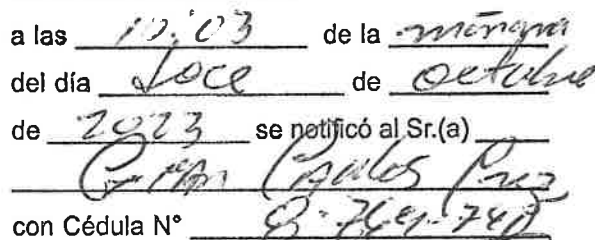 a las 10:03 de la mañana
del día doce de octubre
de 2023 se notificó al Sr.(a)
Carlos
con Cédula N° 8-769-